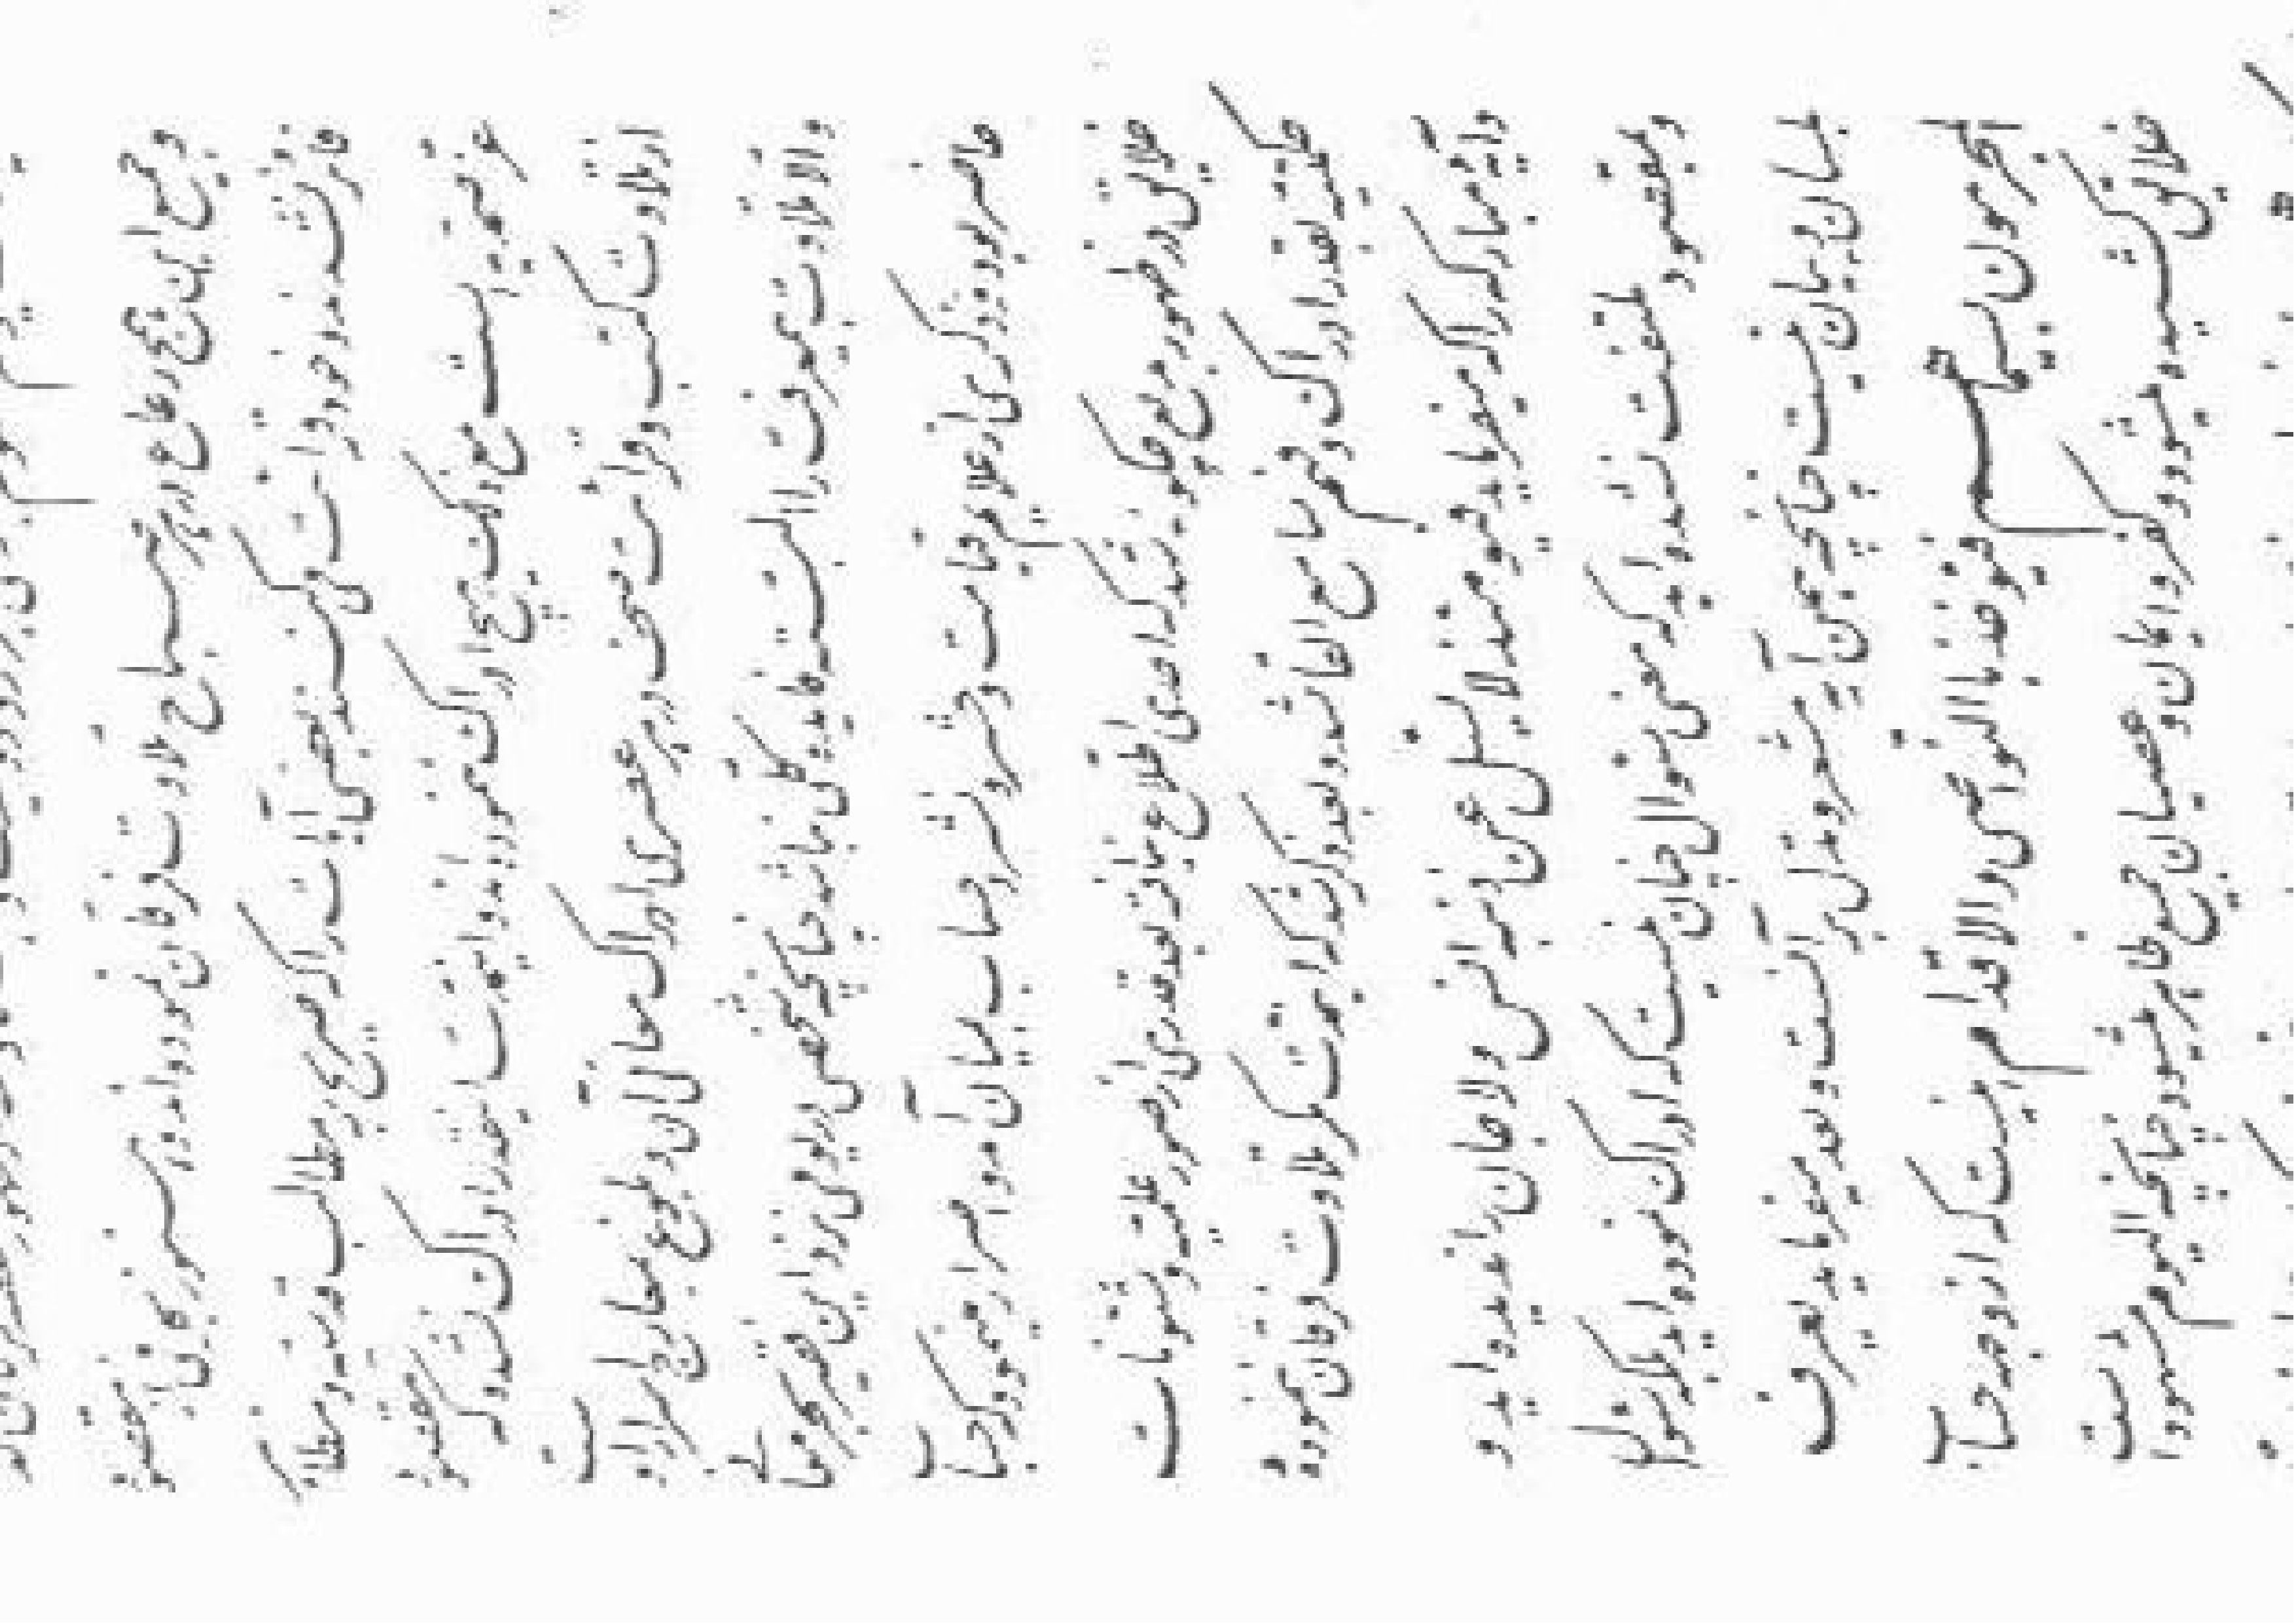 و جمیع این همج رعاع در هر صباح تلاوت فرقان نموده‌اند و هنوز بحرفی از مقصود
فائز نشده‌اند و خود قرائت می‌کنند بعضی آیات را که صریح بر مطالب قدسیه و مظاهر
عز صمدیه است مع ذلک هیچ ادراک ننموده‌اند و این مدت اینقدر ادراک نشده که مقصود
از تلاوت کتب و قرائت صحف در هر عصری ادراک معانی آن و بلوغ بمعارج اسرار آن است
و الا تلاوت بی معرفت را البته فایده کلی نباشد چنانچه شخصی در یومی نزد این فقیر بحر معانی
حاضر بود و ذکری از علائم قیامت و حشر و نشر و حساب بمیان آمد و اصرار مینمود که حساب
خلایق در ظهور بدیع چگونه شد که احدی اطلاع نیافته بعد قدری از صور علمیه و شئونات
حکمیه بقدر ادراک و فهم سامع القا شد و بعد ذکر شد که این مدت مگر تلاوت فرقان ننموده
و آیه مبارکه را که میفرماید فیومئذ لا یسئل عن ذنبه انس و لا جان را ندیده‌اید و
بمقصود ملتفت نشده‌اید که معنی سؤال چنان نیست که ادراک نموده‌اید بلکه سؤال
بلسان و بیان نیست چنانچه همین آیه مشعر و مدل بر آنست و بعد میفرماید یعرف
المجرمون بسیماهم فیؤخذ بالنواصی و الاقدام اینست که از وجه حساب
خلایق کشیده میشود و کفر و ایمان و عصیان جمیع ظاهر میشود چنانچه الیوم مشهود است